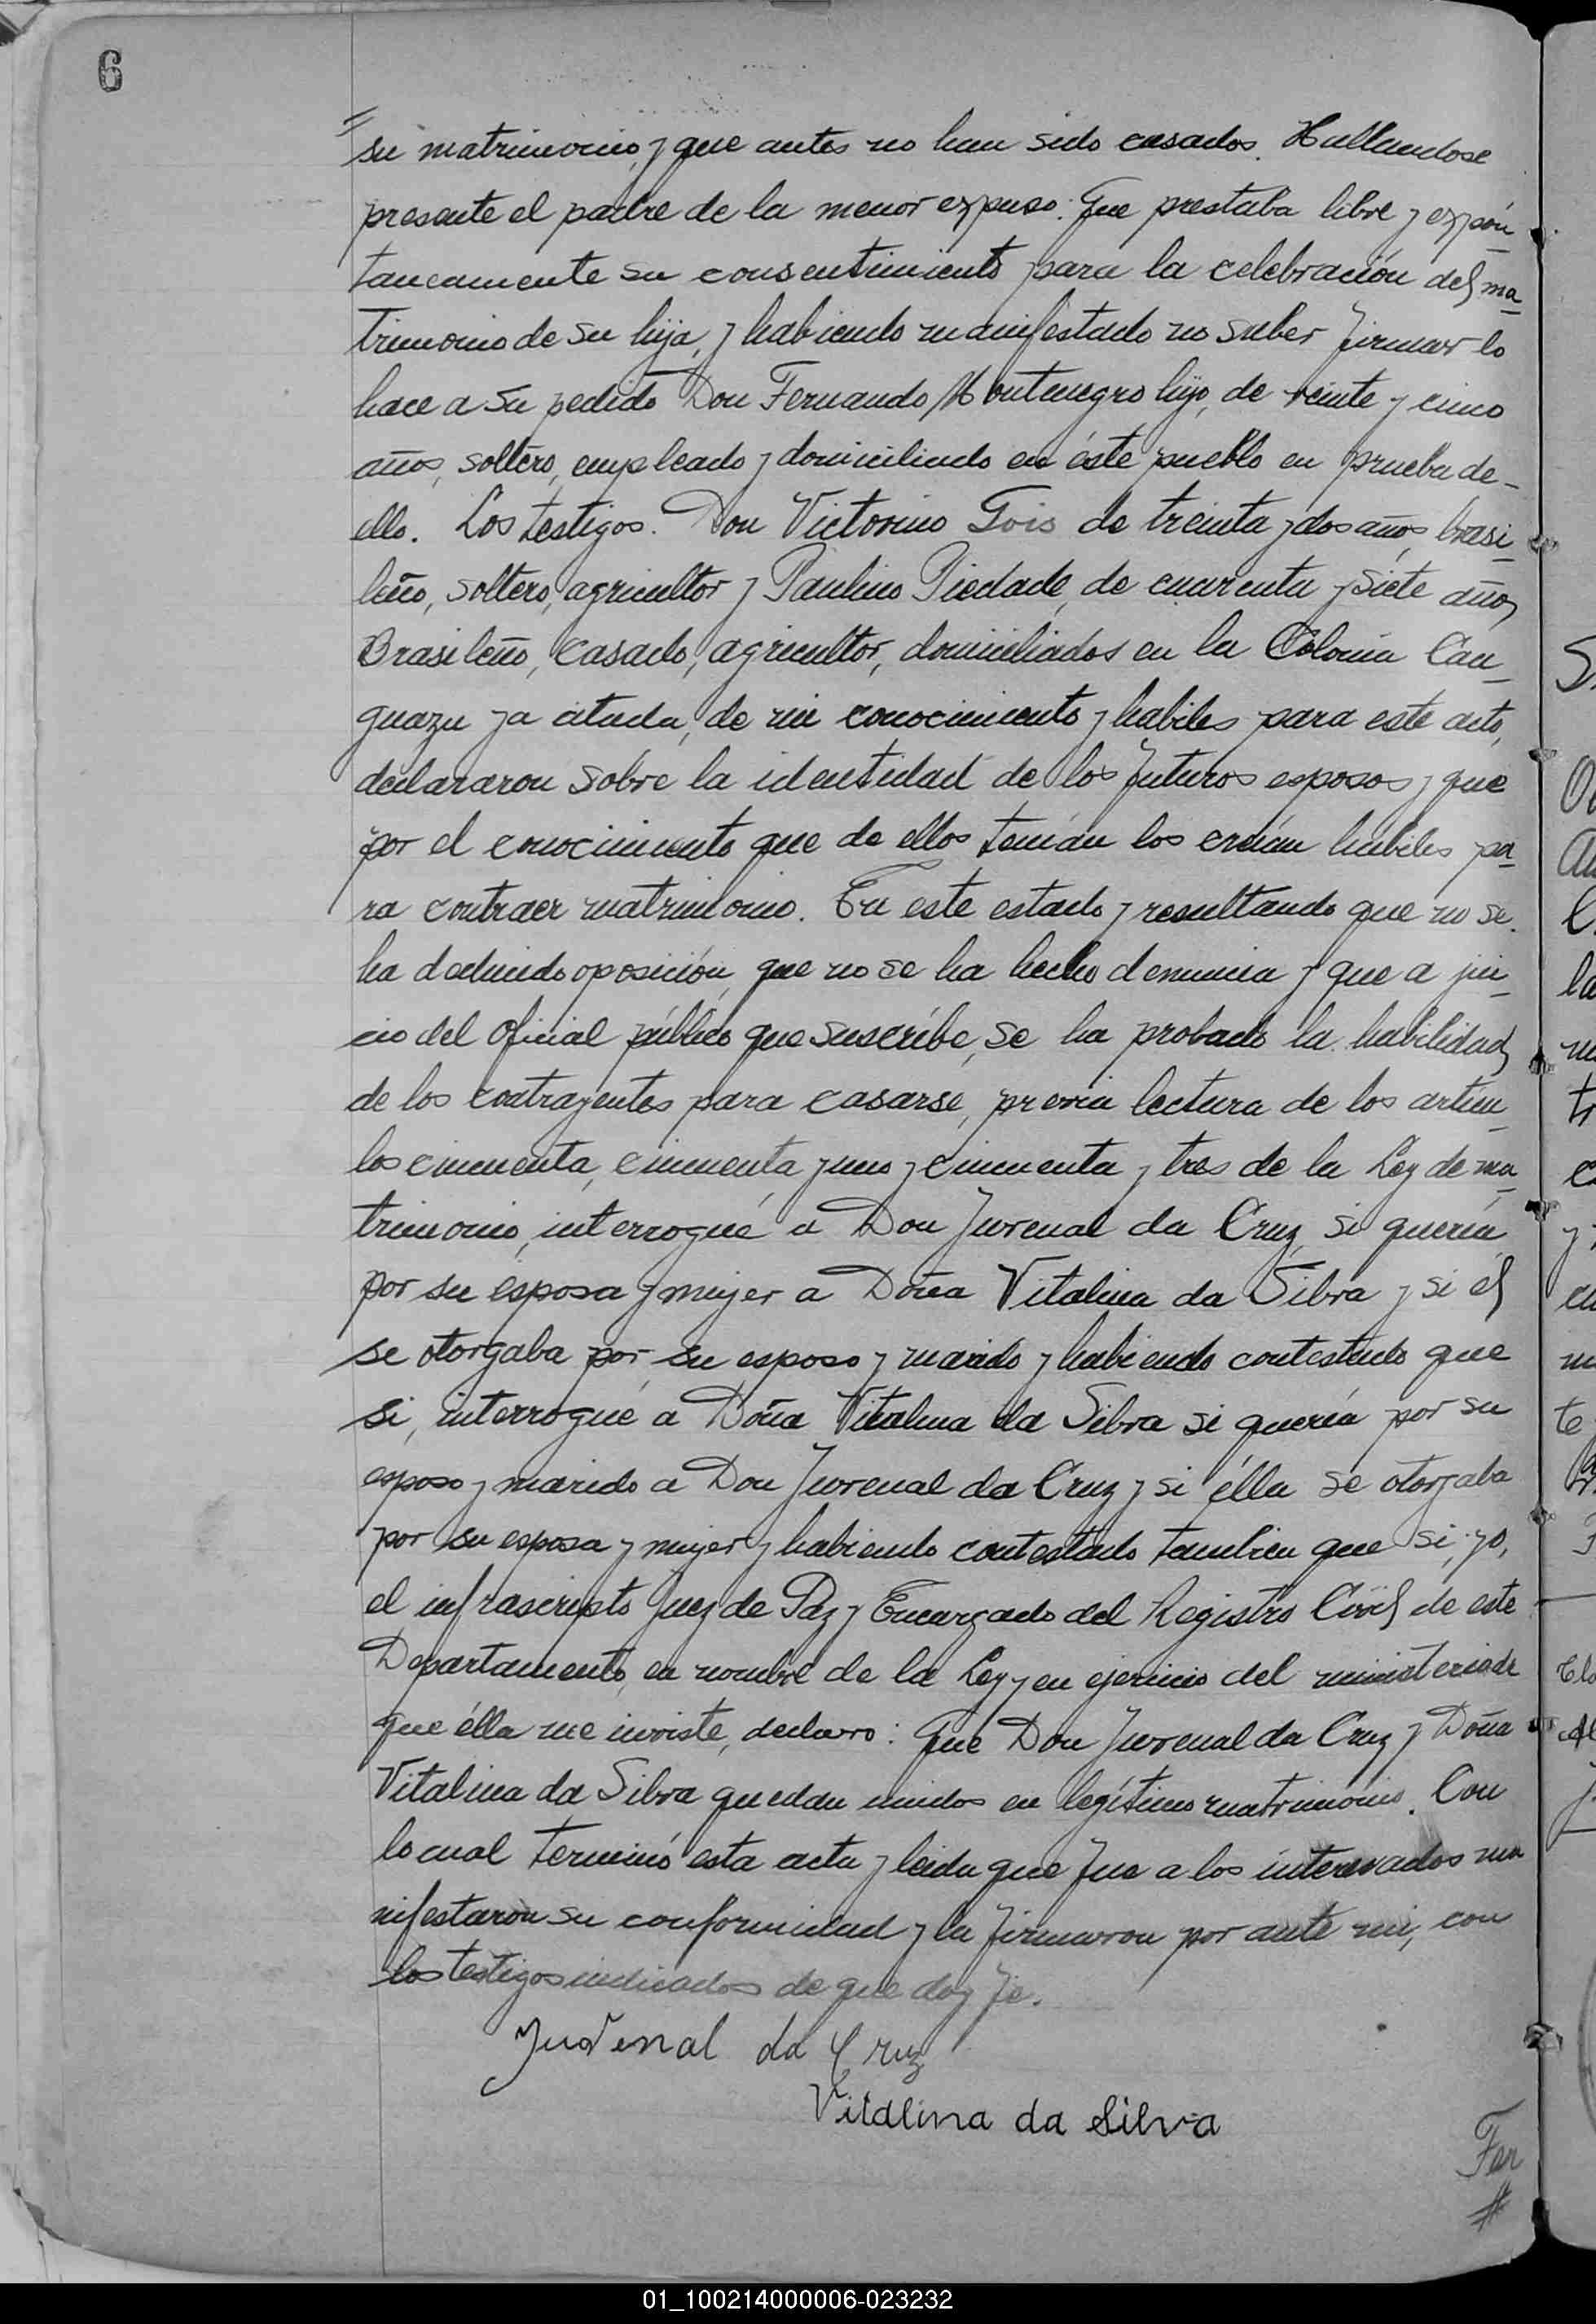 6
su matrimonio, y que antes no han sido casados. Hallandose
presente el padre de la menor expuso: Que prestaba libre y expón_
taneamente su consentimiento para la celebración del ma_
trimonio de su hija, y habiendo manifestado no saber firmar lo
hace a su pedido Don Fernando Montenegro hijo, de veinte y cinco
años, soltero, empleado y domiciliado en éste pueblo en prueba de_
ello. Los testigos. Don Victorino Gois de treinta y dos años, brasi_
leño, soltero, agricultor y Paulino Piedade, de cuarenta y siete años,
Brasileño, casado, agricultor, domiciliados en la Colonia Caa_
guazu ya citada, de mi conocimiento y habiles para este acto,
declararon sobre la identidad de los futuros esposos y que
por el conocimiento que de ellos tenían los creían habiles pa_
ra contraer matrimonio. En este estado y resultando que no se
ha deducido oposición, que no se ha hecho denuncia y que a jui_
cio del Oficial público que suscribe, se ha probado la habilidad
de los contrayentes para casarse, previa lectura de los artícu_
los cincuenta, cincuenta y uno y cincuenta y tres de la Ley de ma_
trimonio, interrogué a Don Juvenal da Cruz, si quería
por su esposa y mujer a Doña Vitalina da Silva y si él
se otorgaba por su esposo y marido y habiendo contestado que
si, interrogué a Doña Vitalina da Silva si quería por su
esposo y marido a Don Juvenal da Cruz y si élla se otorgaba
por su esposa y mujer y habiendo contestado tambien que si, yo,
el infrascripto Juez de Paz y Encargado del Registro Civil de este
Departamento, en nombre de la Ley y en ejercicio del ministerio de
que élla me inviste, declaro: Que Don Juvenal da Cruz y Doña
Vitalina da Silva quedan unidos en legítimo matrimonio. Con
lo cual terminó esta acta y leida que fue a los interesados ma
nifestaron su conformidad y la firmaron por ante mi, con
los testigos indicados de que doy fe.
Juvenal da Cruz
Vitalina da Silva
Fer
#
01_100214000006-023232